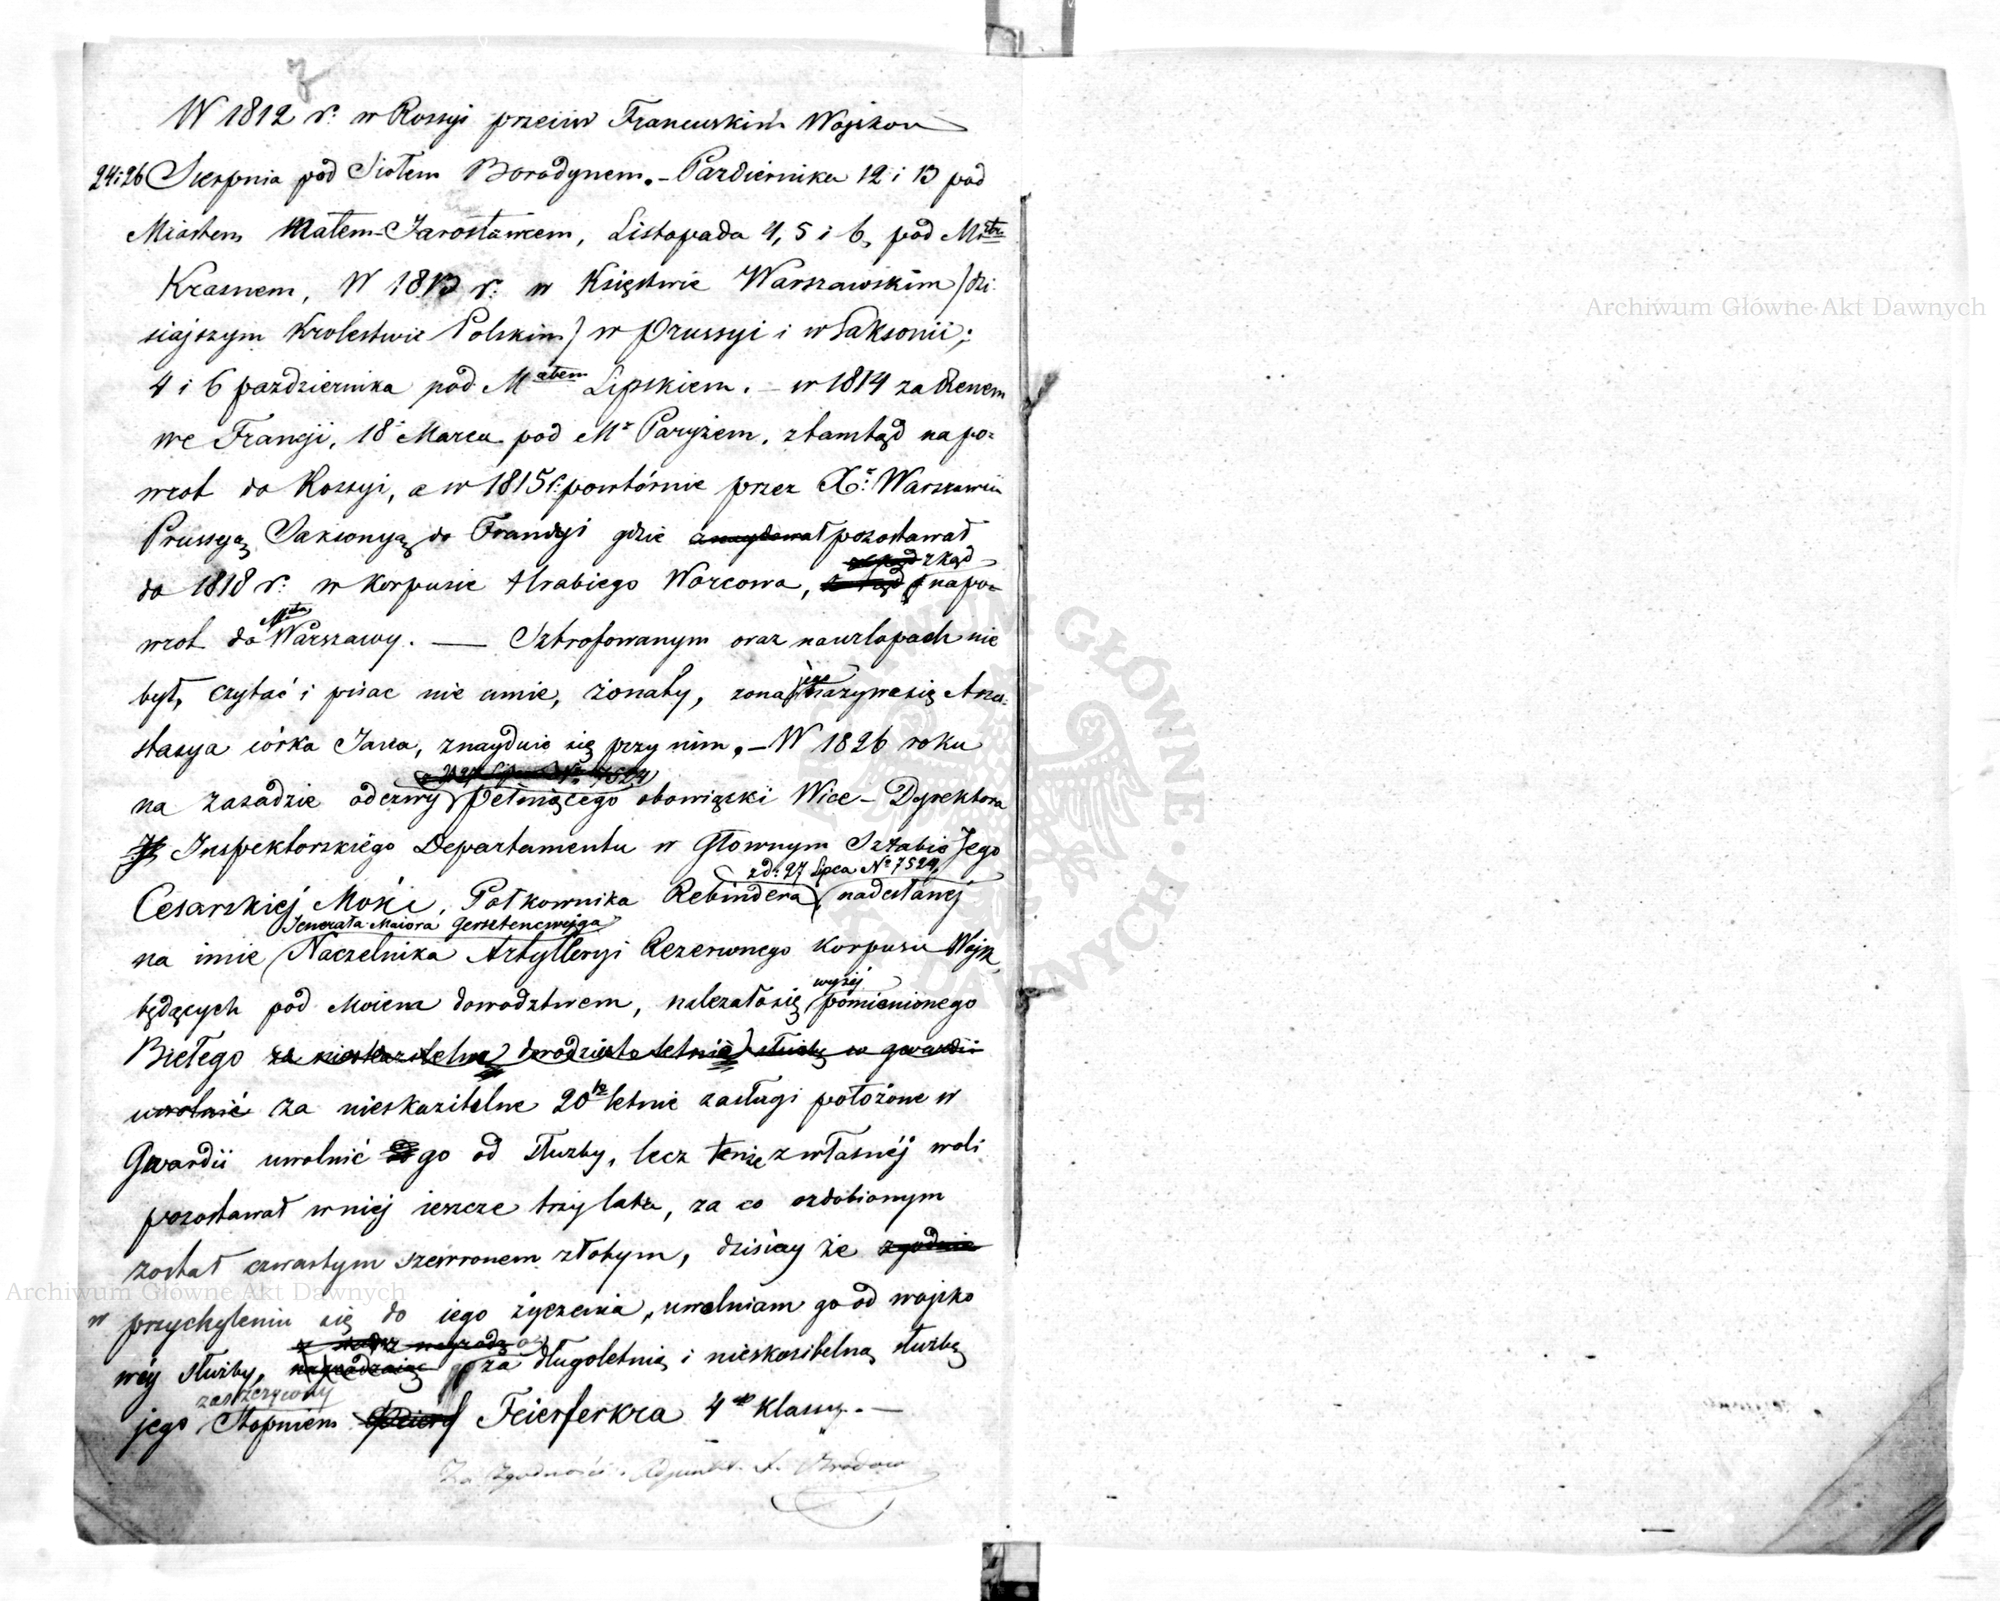 W 1812 r: w Rossyi przeciw Francuskim Wojskom
24 i 26 Sierpnia pod Siołem Borodynem. – Pazdiernika 12 i 13 pod
Miastem Małem-Jarosławcem, Listopada 4, 5 i 6, pod M<sup>stm</sup>
Krasnem, W 1813 r: w Księstwie Warszawskim (dzi-
siajszym Krolestwie Polskim) w Prussyi i w Saksonii;
4 i 6 pazdziernika pod M<sup>astem</sup> Lipskiem. – w 1814 za Renem
we Francji, 18 Marca pod M<sup>r</sup> Paryżem, ztamtąd na po-
wrot do Rossyi, a w 1815 r: powtórnie przez X<sup>o</sup>: Warszawskie
Prussyą, Saksonyą, do Francyi gdzie pozostawał
zkąd
do 1818 r: w Korpusie Hrabiego Worcowa, napo-
wrot do M<sup>sta</sup> Warszawy. — Sztrofowanym oraz na urlopach nie
był, czytać i pisac nie umie, żonaty, zona jego nazywa się Ana-
stasya córka Jana, znayduie się przy nim. – W 1826 roku
27 Lipca N<sup>o</sup> 7524
na zasadzie odezwy pełniącego obowiązki Wice-Dyrektora
Inspektorskiego Departamentu w Głownym Sztabie Jego
zd: 27 Lipca N<sup>o</sup> 7524,
Cesarskiej Mości, Połkownika Rebindera, nadesłanej
Jenerała Maiora Gersztencwejga
na imie Naczelnika Artylleryi Rezerwnego Korpusu Wojsk,
wyżéj
będących pod Moiem dowodztwem, należało się pomienionego
Biełego za nieskazitelną dwadziesto letnią służbę w gwardii
uwolnić za nieskazitelne 20<sup>to</sup> letnie zasługi położone w
Gwardii uwolnić go od służby, lecz tenże z własnéj woli
pozostawał w niej ieszcze trzy lata, za co ozdobionym
został czwartym szewronem złotym, dzisiay że zgodnie
w przychyleniu się do iego życzenia, uwalniam go od wojsko
wéy służby, nagradzaiąc za długoletnią i nieskazitelną służbę
zaszczycony
jego Stopniem Feierferkra 4<sup>ej</sup> klassy. —
Za Zgodność: Adjunkt
Archiwum Główne Akt Dawnych
Archiwum Główne Akt Dawnych